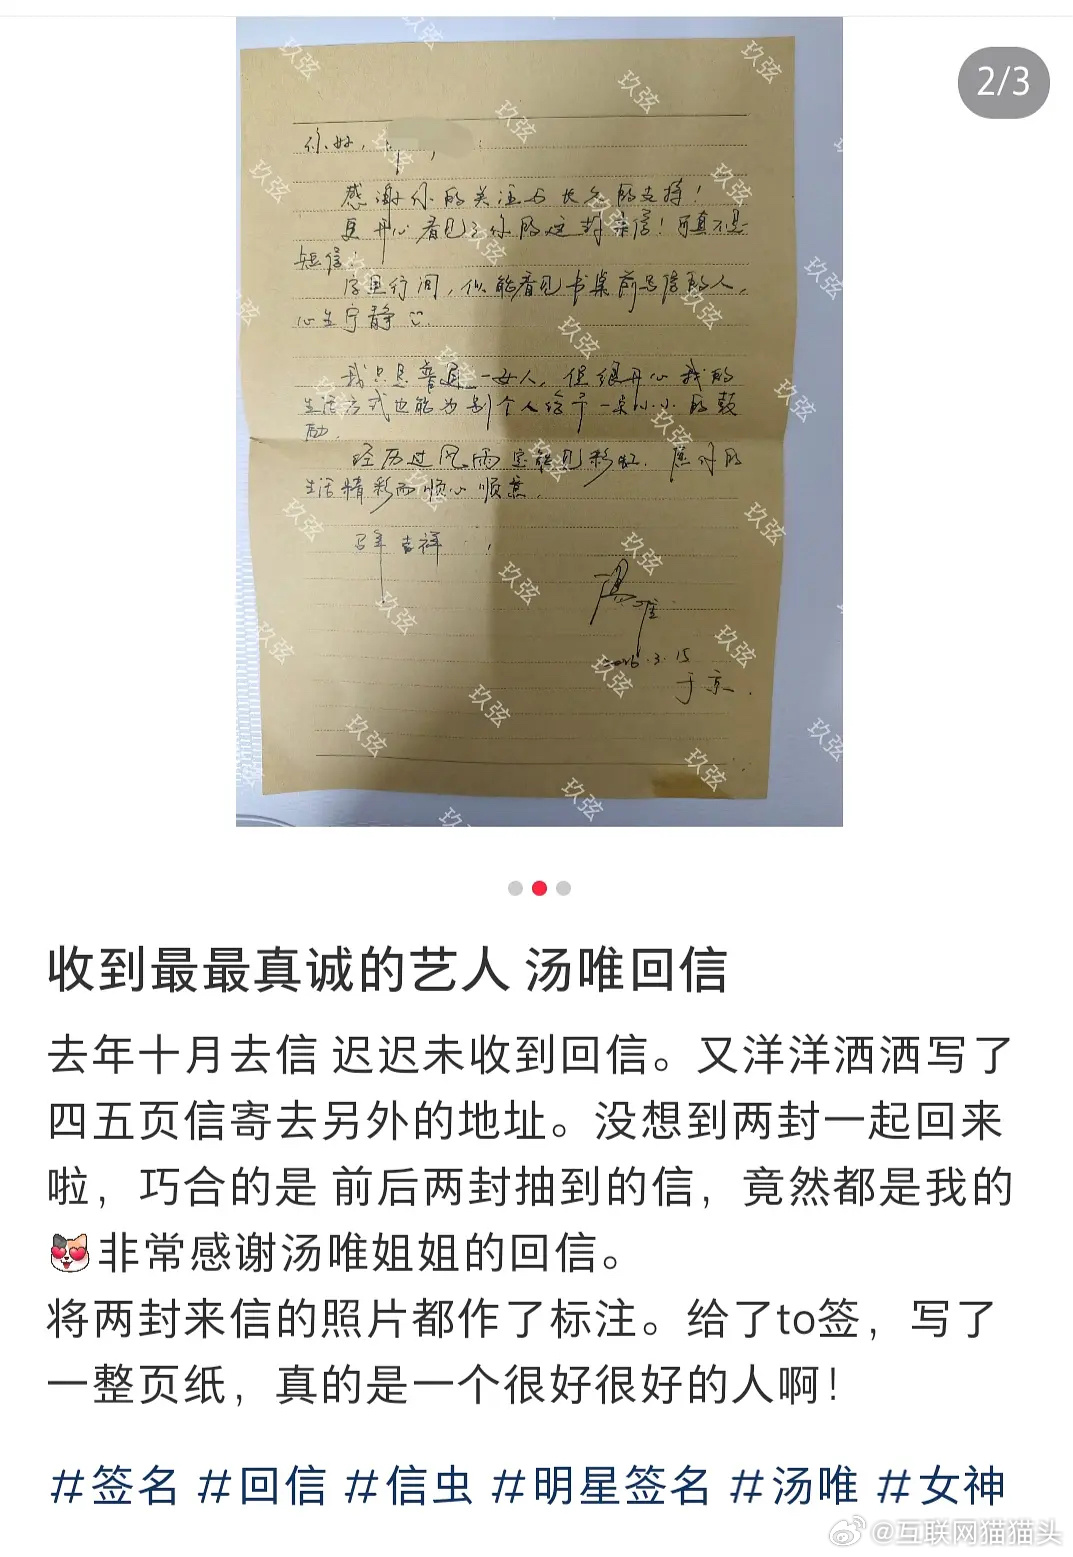 2/3
你好，
感谢你的关注与长久的支持！
更开心看见了你的这封亲信！可真不是
短信；
字里行间，似能看见书桌前写信的人，
心生宁静
我只是普通一女人，但很开心我的
生活方式也能为别个人给予一点小小的鼓
励。
经历过风雨定能见彩虹.
生活精彩而顺心顺意.
马年吉祥
汤唯
2026.3.15
于京.
玖弦
收到最最真诚的艺人 汤唯回信
去年十月去信 迟迟未收到回信。又洋洋洒洒写了
四五页信寄去另外的地址。没想到两封一起回来
啦，巧合的是 前后两封抽到的信，竟然都是我的
非常感谢汤唯姐姐的回信。
将两封来信的照片都作了标注。给了to签，写了
一整页纸，真的是一个很好很好的人啊！
#签名 #回信 #信虫 #明星签名 #汤唯 #女神
@互联网猫猫头